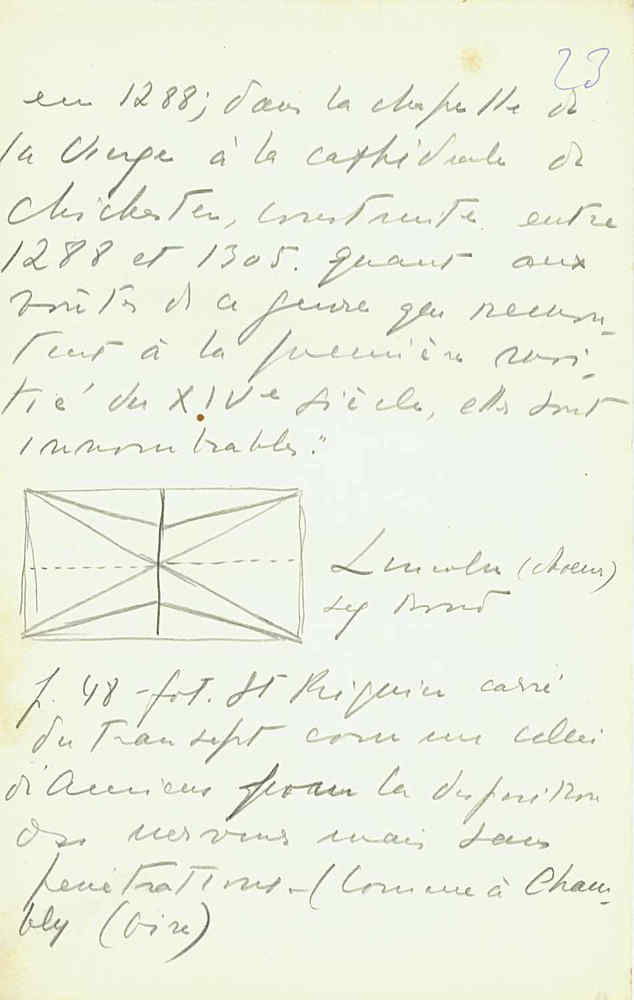 23
en 1288; dans la chapelle de
la Vierge à la cathédrale de
Chichester, construite entre
1288 et 1305. Quant aux
voûtes de ce genre qui remon-
tent à la première moi-
tié du XIVe siècle, elles sont
innombrables."
Lincoln (chœur)
sg Bond
p. 48 - fot. St Riquier carré
du transept comme celui
d'Amiens pour la disposition
des nervures mais sans
pénétrations - (Comme à Cham-
bly (Oise)